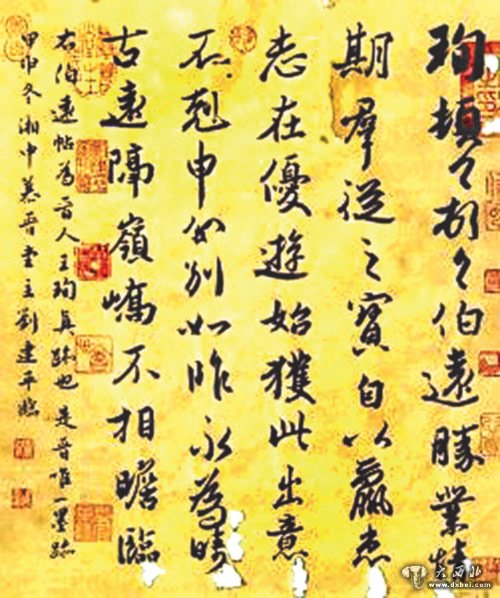 珣頓々首々伯遠勝業情
期羣從之寶自以羸患
志在優遊始獲此出意
不剋申分別如昨永為疇
古遠隔嶺嶠不相瞻臨
右伯遠帖為晉人王珣真跡也是晉唯一墨跡
甲申冬湘中慕晉堂主劉建平臨
大西北
www.dxbei.com